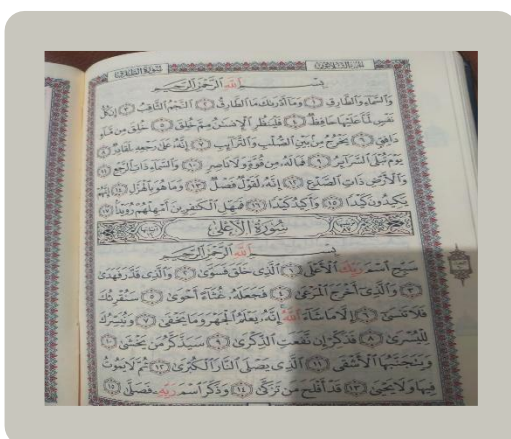 سورة الطارق
بسم الله الرحمن الرحيم
والسماء والطارق ١ وما أدرىك ما الطارق ٢ النجم الثاقب ٣ إن كل
نفس لما عليها حافظ ٤ فلينظر الإنسن مم خلق ٥ خلق من ماء
دافق ٦ يخرج من بين الصلب والترائب ٧ إنه على رجعه لقادر ٨
يوم تبلى السرائر ٩ فما له من قوة ولا ناصر ١٠ والسماء ذات الرجع ١١
والأرض ذات الصدع ١٢ إنه لقول فصل ١٣ وما هو بالهزل ١٤ إنهم
يكيدون كيدا ١٥ وأكيد كيدا ١٦ فمهل الكفرين أمهلهم رويدا ١٧
سورة الأعلى
بسم الله الرحمن الرحيم
سبح اسم ربك الأعلى ١ الذى خلق فسوى ٢ والذى قدر فهدى
٣ والذى أخرج المرعى ٤ فجعله غثاء أحوى ٥ سنقرئك
فلا تنسى ٦ إلا ما شاء الله إنه يعلم الجهر وما يخفى ٧ ونيسرك
لليسرى ٨ فذكر إن نفعت الذكرى ٩ سيذكر من يخشى ١٠
ويتجنبها الأشقى ١١ الذى يصلى النار الكبرى ١٢ ثم لا يموت
فيها ولا يحيى ١٣ قد أفلح من تزكى ١٤ وذكر اسم ربه فصلى ١٥